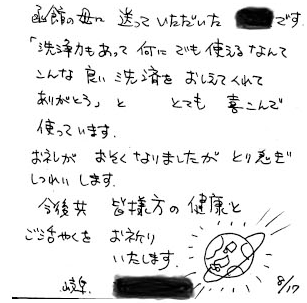 函館の母に 送っていただいた です。
「洗浄力もあって 何にでも使えるなんて
こんな 良い 洗済を おしえてくれて
ありがとう」と とても 喜こんで
使っています。
お礼が おそくなりましたが とり急ぎ
しつれいします。
今後共 皆様方の健康と
ご活やくを お祈り
いたします。
岐阜 8/17